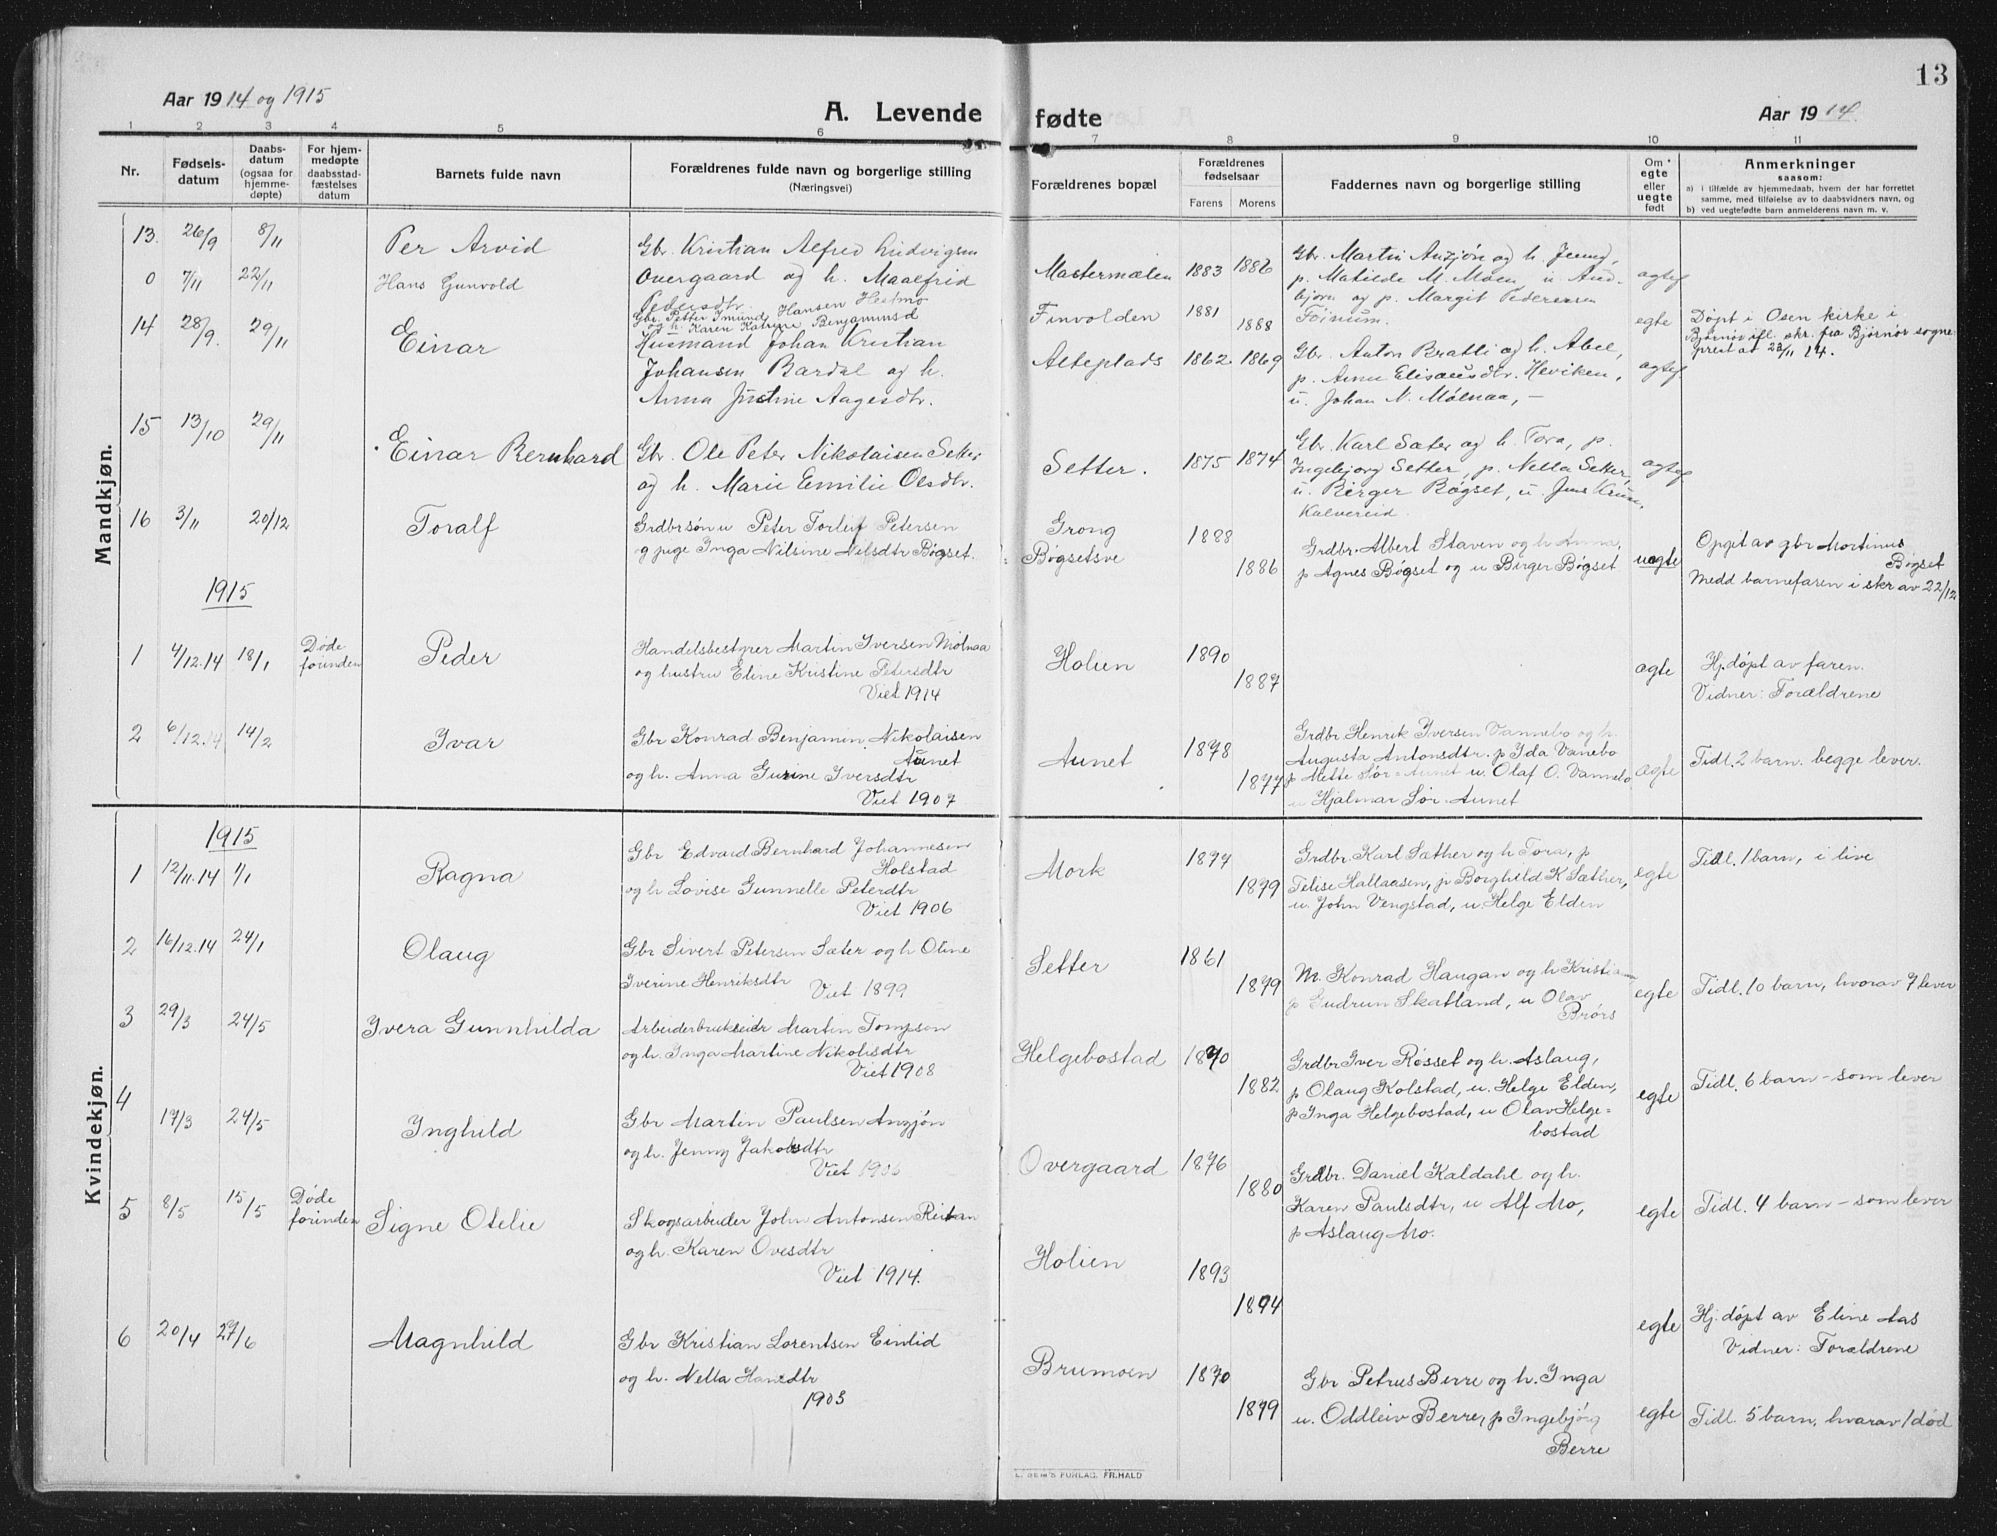 Aar 1914 og 1915
A. Levende fødte
Aar 1914
13
1 2 3 4 5 6 7 8 9 10 11
Nr.
Fødsels-
datum
Daabs-
datum
(ogsaa for
hjemme-
døpte)
For hjem-
medøpte
daabsstad-
fæstelses
datum
Barnets fulde navn
Forældrenes fulde navn og borgerlige stilling
(Næringsvei)
Forældrenes bopæl
Forældrenes
fødselsaar
Farens Morens
Faddernes navn og borgerlige stilling
Om
egte
eller
uegte
født
Anmerkninger
saasom:
a) i tilfælde av hjemmedaab, hvem der har forrettet
samme, med tilføielse av to daabsvidners navn, og
b) ved uegtefødte barn anmelderens navn m. v.
Mandkjøn.
13. 26/9 8/11 Per Arvid
Gbr. Kristian Alfred Ludvigsen
Overgaard og h. Maalfrid
Pedersdtr.
Mastermælen 1883 1886
Gbr. Martin Anzjön og h. Jenny,
p. Matilde M. Moen, u. And-
bjørn og p. Margit Pedersen
Föinum.
0 7/11 22/11 Hans Gunvold
Gbr. Petter Imund Hansen Hestmo
og h. Karen Katrine Benjaminsd
Finvolden 1881 1888
egte
Døpt i Osen kirke i
Bjørnør ifl. skr. fra Bjørnør sogne-
prest av 23/11 14.
14 28/9. 29/11 Einar
Husmand Johan Kristian
Johansen Bardal og h.
Anna Justine Aagesdtr.
Alteplads 1862 1869
Gbr. Anton Bratli og h. Abel,
p. Anna Elisæusdtr. Heviken,
u. Johan N. Mølnaa, —
15 13/10 29/11 Einar Bernhard
Gbr. Ole Peter Nikolaisen Setter
og h. Marie Emilie Olsdtr.
Setter. 1875 1874
Gbr. Karl Sæter og h. Tora, p.
Ingebjorg Setter, p. Nella Setter,
u. Birger Bøgset, u. Jens
Kalvereid.
16 3/11 20/12 Toralf
Grdbrsøn u Peter Torleif Petersen
og pige Inga Nilsine Nelsdtr Bøgset.
Grong
Bøgsetsve
1888
1886
Grdbr. Albert Staven og h Anna,
p Agnes Bøgset og u Birger Bøgset
uegte
Opgit av gbr Mortinus
Bøgset
Medd barnefaren i skr av 22/12
1915
1 4/12.14 18/1 Døde
forinden
Peder
Handelsbestyrer Martin Iversen Mølnaa
og hustru Eline Kristine Petersdtr
Viet 1914
Holien 1890
1887
egte
Hj. døpt av faren.
Vidner: Forældrene
2 6/12.14 14/2 Ivar
Gbr Konrad Benjamin Nikolaisen
Aunet
og h. Anna Gurine Iversdtr
Viet 1907
Aunet 1878
1877
Grdbr Henrik Iversen Vannebo og h.
Augusta Antonsdtr. p Ida Vanebo
p Mette Sør-Aunet u. Olaf O. Vannebo
u Hjalmar Sør-Aunet
egte
Tidl. 2 barn. begge lever.
Kvindekjøn.
1915
1 12/11.14 1/1 Ragna
Gbr Edvard Bernhard Johannesen
Holstad
og h Lovise Gunnelle Peterdtr
Viet 1906
Mork 1877
1879
Grdbr Karl Sæther og h Tora, p
Telise Hallaasen, p Borghild K Sæther,
u. John Vengstad, u. Helge Elden
egte
Tidl. 1 barn, i live
2 16/12.14 24/1 Olaug
Gbr Sivert Petersen Sæter og h Oline
Iverine Henriksdtr
Viet 1899
Setter 1861
1879
M. Konrad Haugan og h Kristianna
p Gudrun Skatland, u Olav
Brørs
egte
Tidl. 10 barn, hvorav 7 lever
3 29/3 24/5 Ivera Gunnhilda
Arbeiderbrukseier Martin Tompson
og h. Inga Martine Nikolisdtr
Viet 1908
Helgebostad 1870
1882
Grdbr Iver Røsset og h. Aslaug,
p Olaug Kolstad, u. Helge Elden,
p Inga Helgebostad, u Olav Helge-
bostad
egte
Tidl. 6 barn - som lever
4 17/3 24/5 Inghild
Gbr Martin Paulsen Anzjön
og h. Jenny Jakobsdtr
Overgaard 1876
1880
Grdbr. Daniel Kaldahl og h.
Karen Paulsdtr, u Alf Mo,
p Aslaug Mo.
egte
Tidl. 4 barn - som lever
5 8/5 15/5 Døde
forinden
Signe Otelie
Skogsarbeider John Antonsen Reitan
og h. Karen Ovesdtr
Viet 1914.
Holien 1893
1894
egte
Hj. døpt av Eline Aas
Vidner: Forældrene
6 20/4 27/6 Magnhild
Gbr Kristian Lorentsen Eimlid
og h. Nella Hansdtr
1903
Brumoen 1870
1879
Gbr Petrus Berre og h. Inga
u. Oddleiv Berre, p Ingebjørg
Berre
egte
Tidl. 5 barn, hvarav 1 død